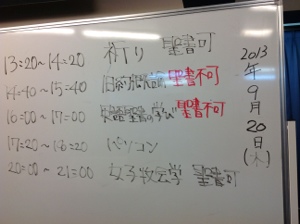 13:20~14:20 祈り 聖書可
14:40~15:40 旧約 聖書不可
16:00~17:00 聖書の学び 聖書不可
17:20~18:20 パソコン
20:00~21:00 女子教会学 聖書可
2013年9月20日(木)